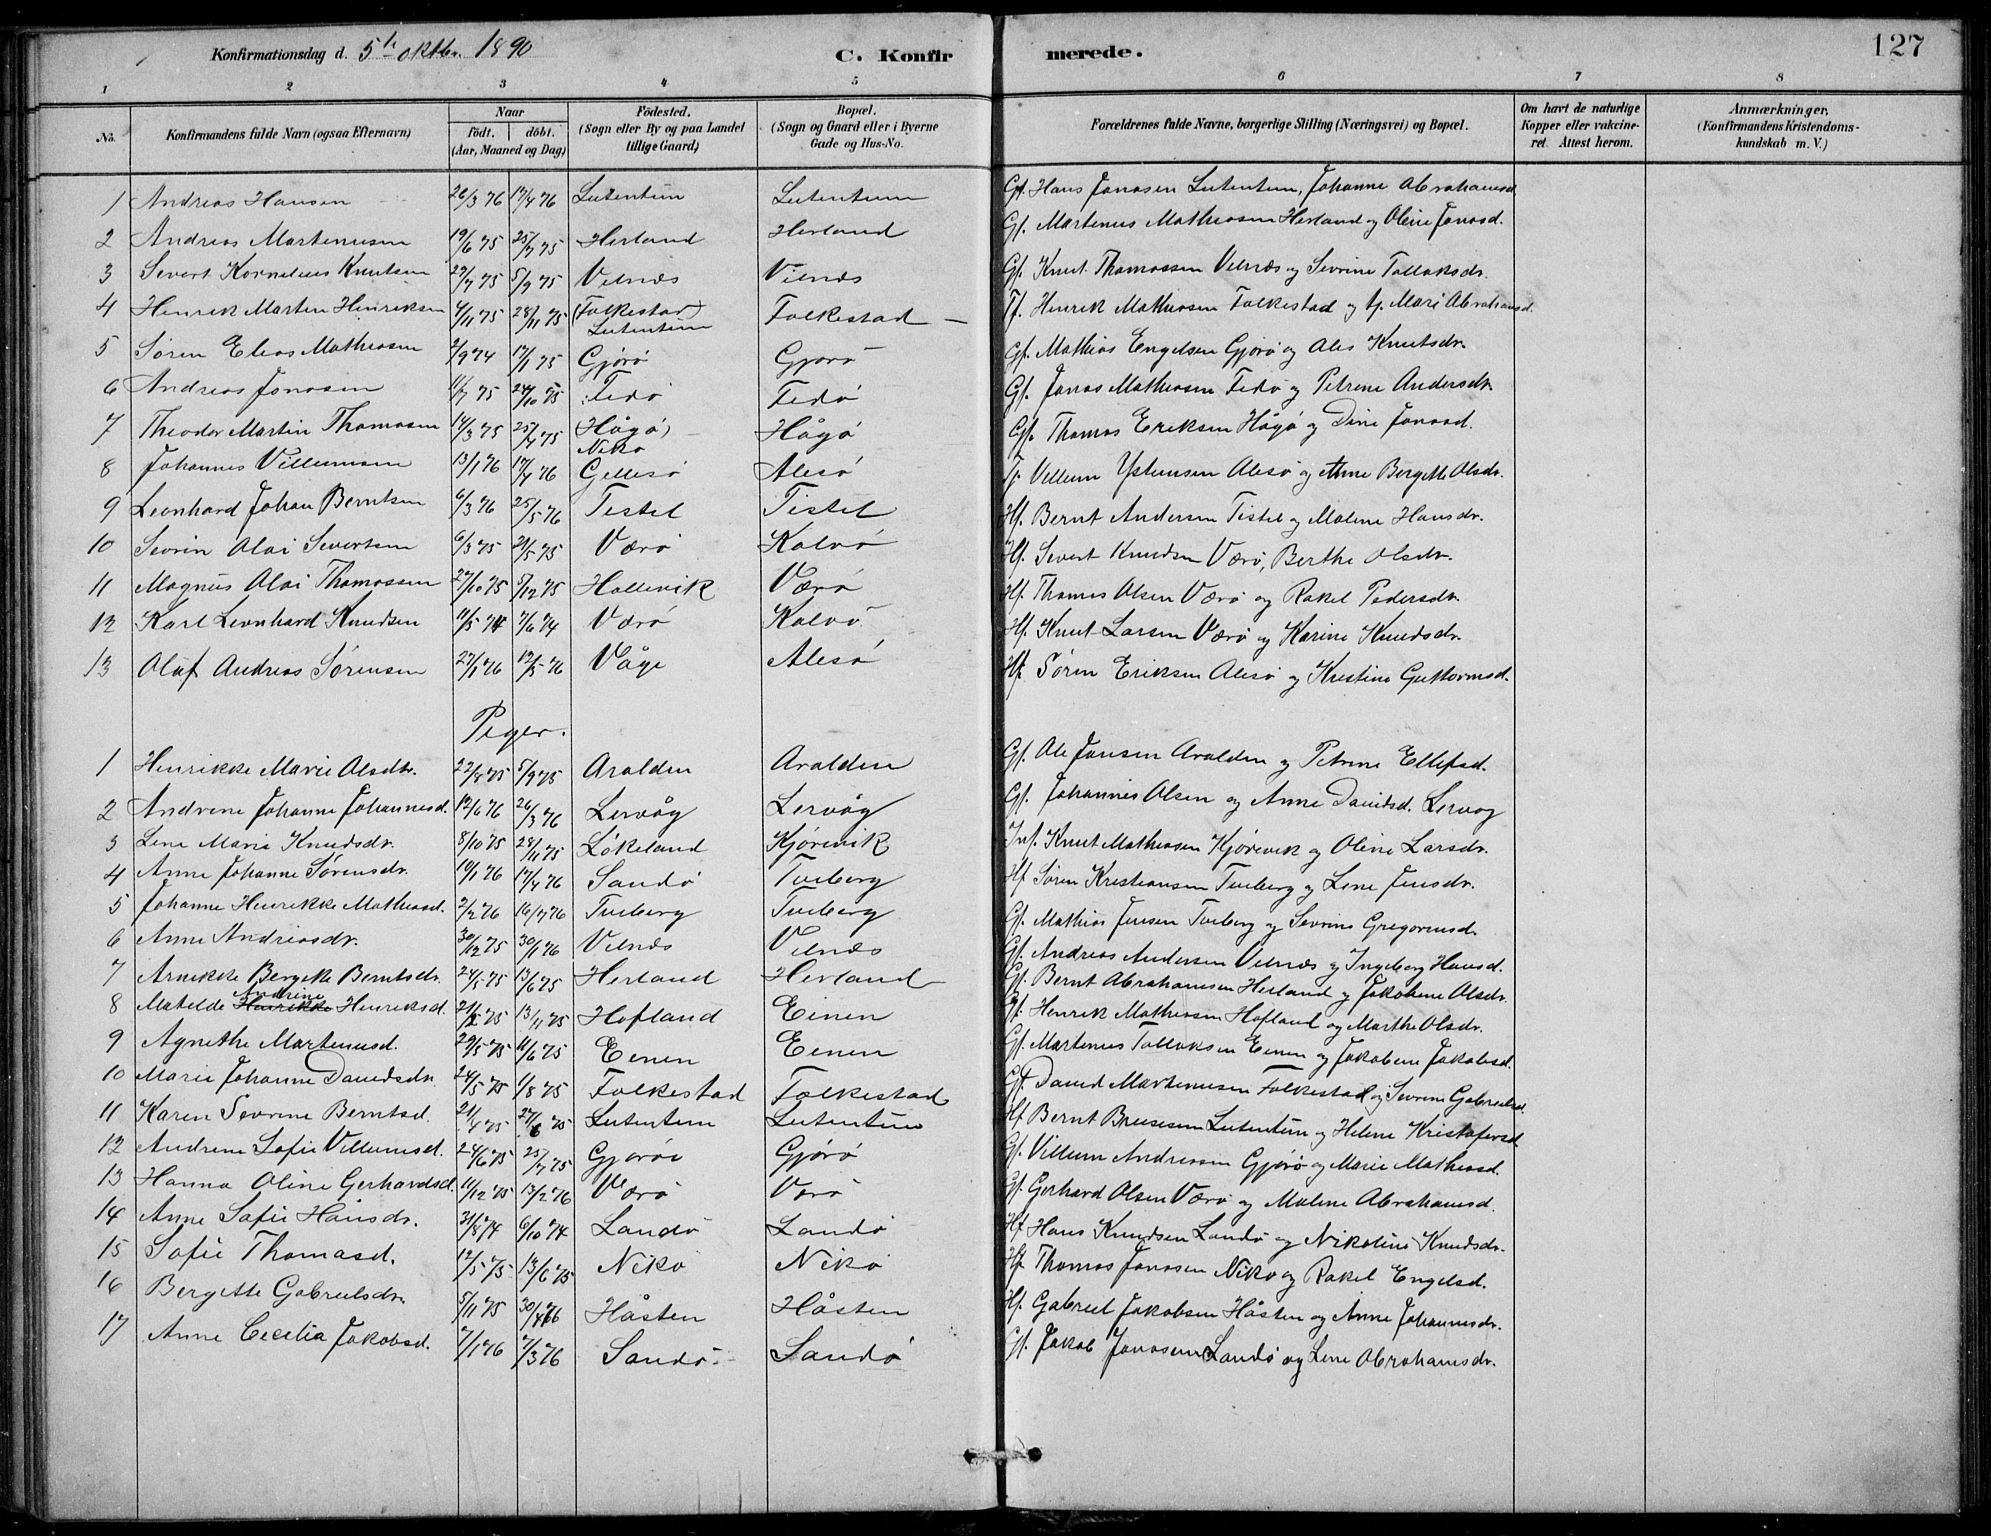 Konfirmationsdag d. 5te oktbr. 1890 C. Konfirmerede. 127
1 2 3 4 5 6 7 8
No. Konfirmandens fulde Navn (ogsaa Efternavn) Naar født. døbt. (Aar, Maaned og Dag) Fødested. (Sogn eller By og paa Landet tillige Gaard) Bopæl. (Sogn og Gaard eller i Byerne Gade og Hus-No. Forældrenes fulde Navne, borgerlige Stilling (Næringsvei) og Bopæl. Om havt de naturlige Kopper eller vakcineret. Attest herom. Anmærkninger, (Konfirmandens Kristendomskundskab m. V.)
1 Andreas Hansen 26/3 76 17/4 76 Lutentun Lutentun Gf. Hans Jonasen Lutentun, Johanne Abrahamsd.
2 Andreas Martenusen 19/6 75 25/7 75 Herland Herland Gf. Martenus Mathiasen Herland og Oline Jonasd.
3 Severt Kornelius Knutsen 29/7 75 5/9 75 Vilnæs Vilnæs Gf. Knut Thomassen Vilnæs og Sevrine Tollaksdr.
4 Henrik Marten Henriksen 4/11 75 28/11 75 (Folkestad) Lutentun Folkestad Tf. Henrik Mathiasen Folkestad og Mari Abrahamsd.
5 Søren Elias Mathiasen 2/9 74 17/1 75 Gjørø Gjørø Gf. Mathias Engelsen Gjørø og Ales Knutsdr.
6 Andreas Jonasen 11/7 75 24/10 75 Fedø Fedø Gf. Jonas Mathiasen Fedø og Petrene Andersdr.
7 Theodor Martin Thomasen 14/3 75 25/4 75 Hågø Hågø Gf. Thomas Eriksen Hågø og Dine Jonasd.
8 Johannes Villumsen 13/1 76 17/4 76 Niko Gellesø Alesø Tf. Villum Ystensen Alesø og Anne Bergette Olsdr.
9 Leonhard Johan Berntsen 6/3 76 25/5 76 Tistel Tistel Hf. Bernt Andersen Tistel og Malene Hansdr.
10 Sevrin Olai Severtsen 6/3 75 21/5 75 Værø Kalvø Hf. Severt Knudsen Værø, Berthe Olsdr.
11 Magnus Olai Thomassen 27/10 75 5/12 75 Hollevik Værø Hf. Thomas Olsen Værø og Rakel Pedersdr.
12 Karl Leonhard Knudsen 11/5 74 7/6 74 Værø Kalvø Hf. Knut Larsen Værø og Karine Knudsdr.
13 Olaf Andreas Sørensen 27/1 76 12/3 76 Våge Alesø Hf. Søren Eriksen Alesø og Kristine Guttormsd.
Piger.
1 Henrikke Marie Olsdtr. 22/8 75 5/9 75 Aralden Aralden Gf. Ole Jansen Aralden og Petrine Ellefsd.
2 Andrine Johanne Johannesd. 12/1 76 26/3 76 Lervåg Lervåg Gf. Johannes Olsen og Anne Davidsd. Lervog
3 Lene Marie Knudsdr. 8/10 75 28/11 75 Løkeland Kjørevik Inf. Knut Mathiasen Kjørevik og Oline Larsdr.
4 Anne Johanne Sørensdr. 10/1 76 17/4 76 Sandø Tveberg Hf Søren Kristiansen Tveberg og Lene Jensdr.
5 Johanne Henrikke Mathiasd. 2/2 76 16/4 76 Tveberg Tveberg Gf. Mathias Jensen Tveberg og Sevrine Gregoriusd.
6 Anne Andreasdr. 30/12 75 30/1 76 Vilnæs Vilnæs Gf. Andreas Andersen Vilnæs og Ingeborg Hansd.
7 Arnikke Bergitte Berntsdr. 24/5 75 13/6 75 Herland Herland Gf. Bernt Abrahamsen Herland og Jakobine Olsdr.
8 Matilde Henrikke Andrine Henriksd. 13/11 75 Hofland Einen Gf. Henrik Mathiasen Hofland og Marthe Olsdr.
9 Agnethe Martenusd. 29/5 75 11/6 75 Eenen Eenen Gf. Martenus Tollaksen Eenen og Jakobine Jakobsd.
10 Marie Johanne Davidsdr. 24/5 75 1/8 75 Folkestad Folkestad Gf. David Martenusen Folkestad og Sevrine Gabrielsd.
11 Karen Sevrine Berntsd. 21/4 75 27/6 75 Lutentun Lutentun Hf Bernt Lutentun og Helene Kristofersd.
12 Andrine Sofie Villumsd. 24/6 75 25/7 75 Gjørø Gjørø Gf. Villum Andreasen Gjørø og Marie Mathiasd.
13 Hanna Oline Gerhardsd. 11/12 75 13/2 76 Værø Værø Gf. Gerhard Olsen Værø og Malene Abrahamsd.
14 Anne Sofie Hansdr. 31/8 74 6/10 74 Landø Landø Hf Hans Knudsen Landø og Nikoline Knudsdr.
15 Sofie Thomasd. 12/5 75 13/6 75 Niko Niko Hf Thomas Jonasen Niko og Rakel Engelsd.
16 Bergette Gabrielsdr. 5/11 75 30/4 76 Håsten Håsten Hf. Gabriel Jakobsen Håsten og Anne Johannesdr.
17 Anne Cecilia Jakobsd. 7/1 76 7/3 76 Sandø Sandø Gf. Jakob Jonasen Landø og Lene Abrahamsdr.